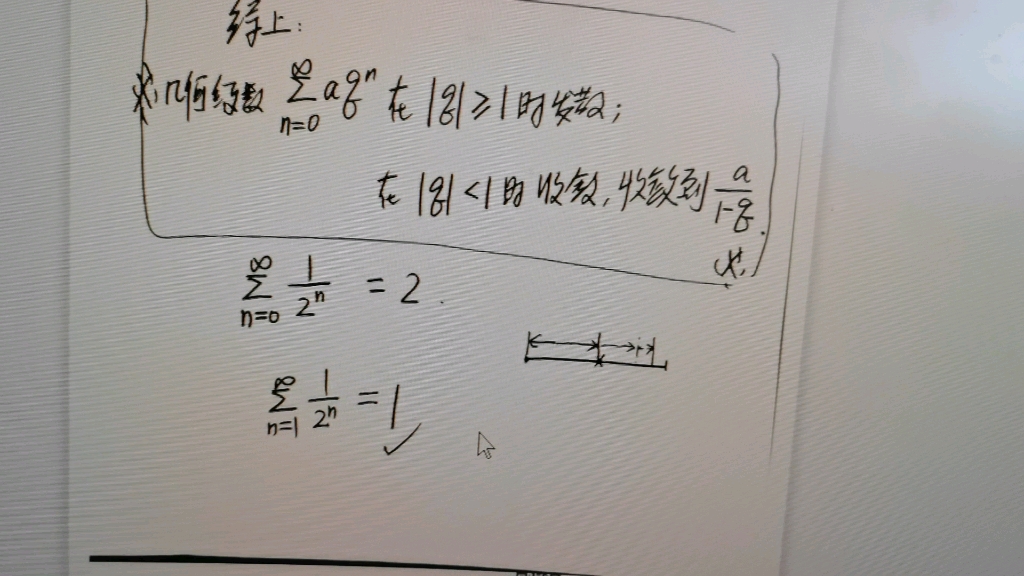 综上：
几何级数 $\sum_{n=0}^{\infty} aq^n$ 在 $|q| \geq 1$ 时发散；
在 $|q| < 1$ 时收敛，收敛到 $\frac{a}{1-q}$.
$\sum_{n=0}^{\infty} \frac{1}{2^n} = 2$.
$\sum_{n=1}^{\infty} \frac{1}{2^n} = 1$